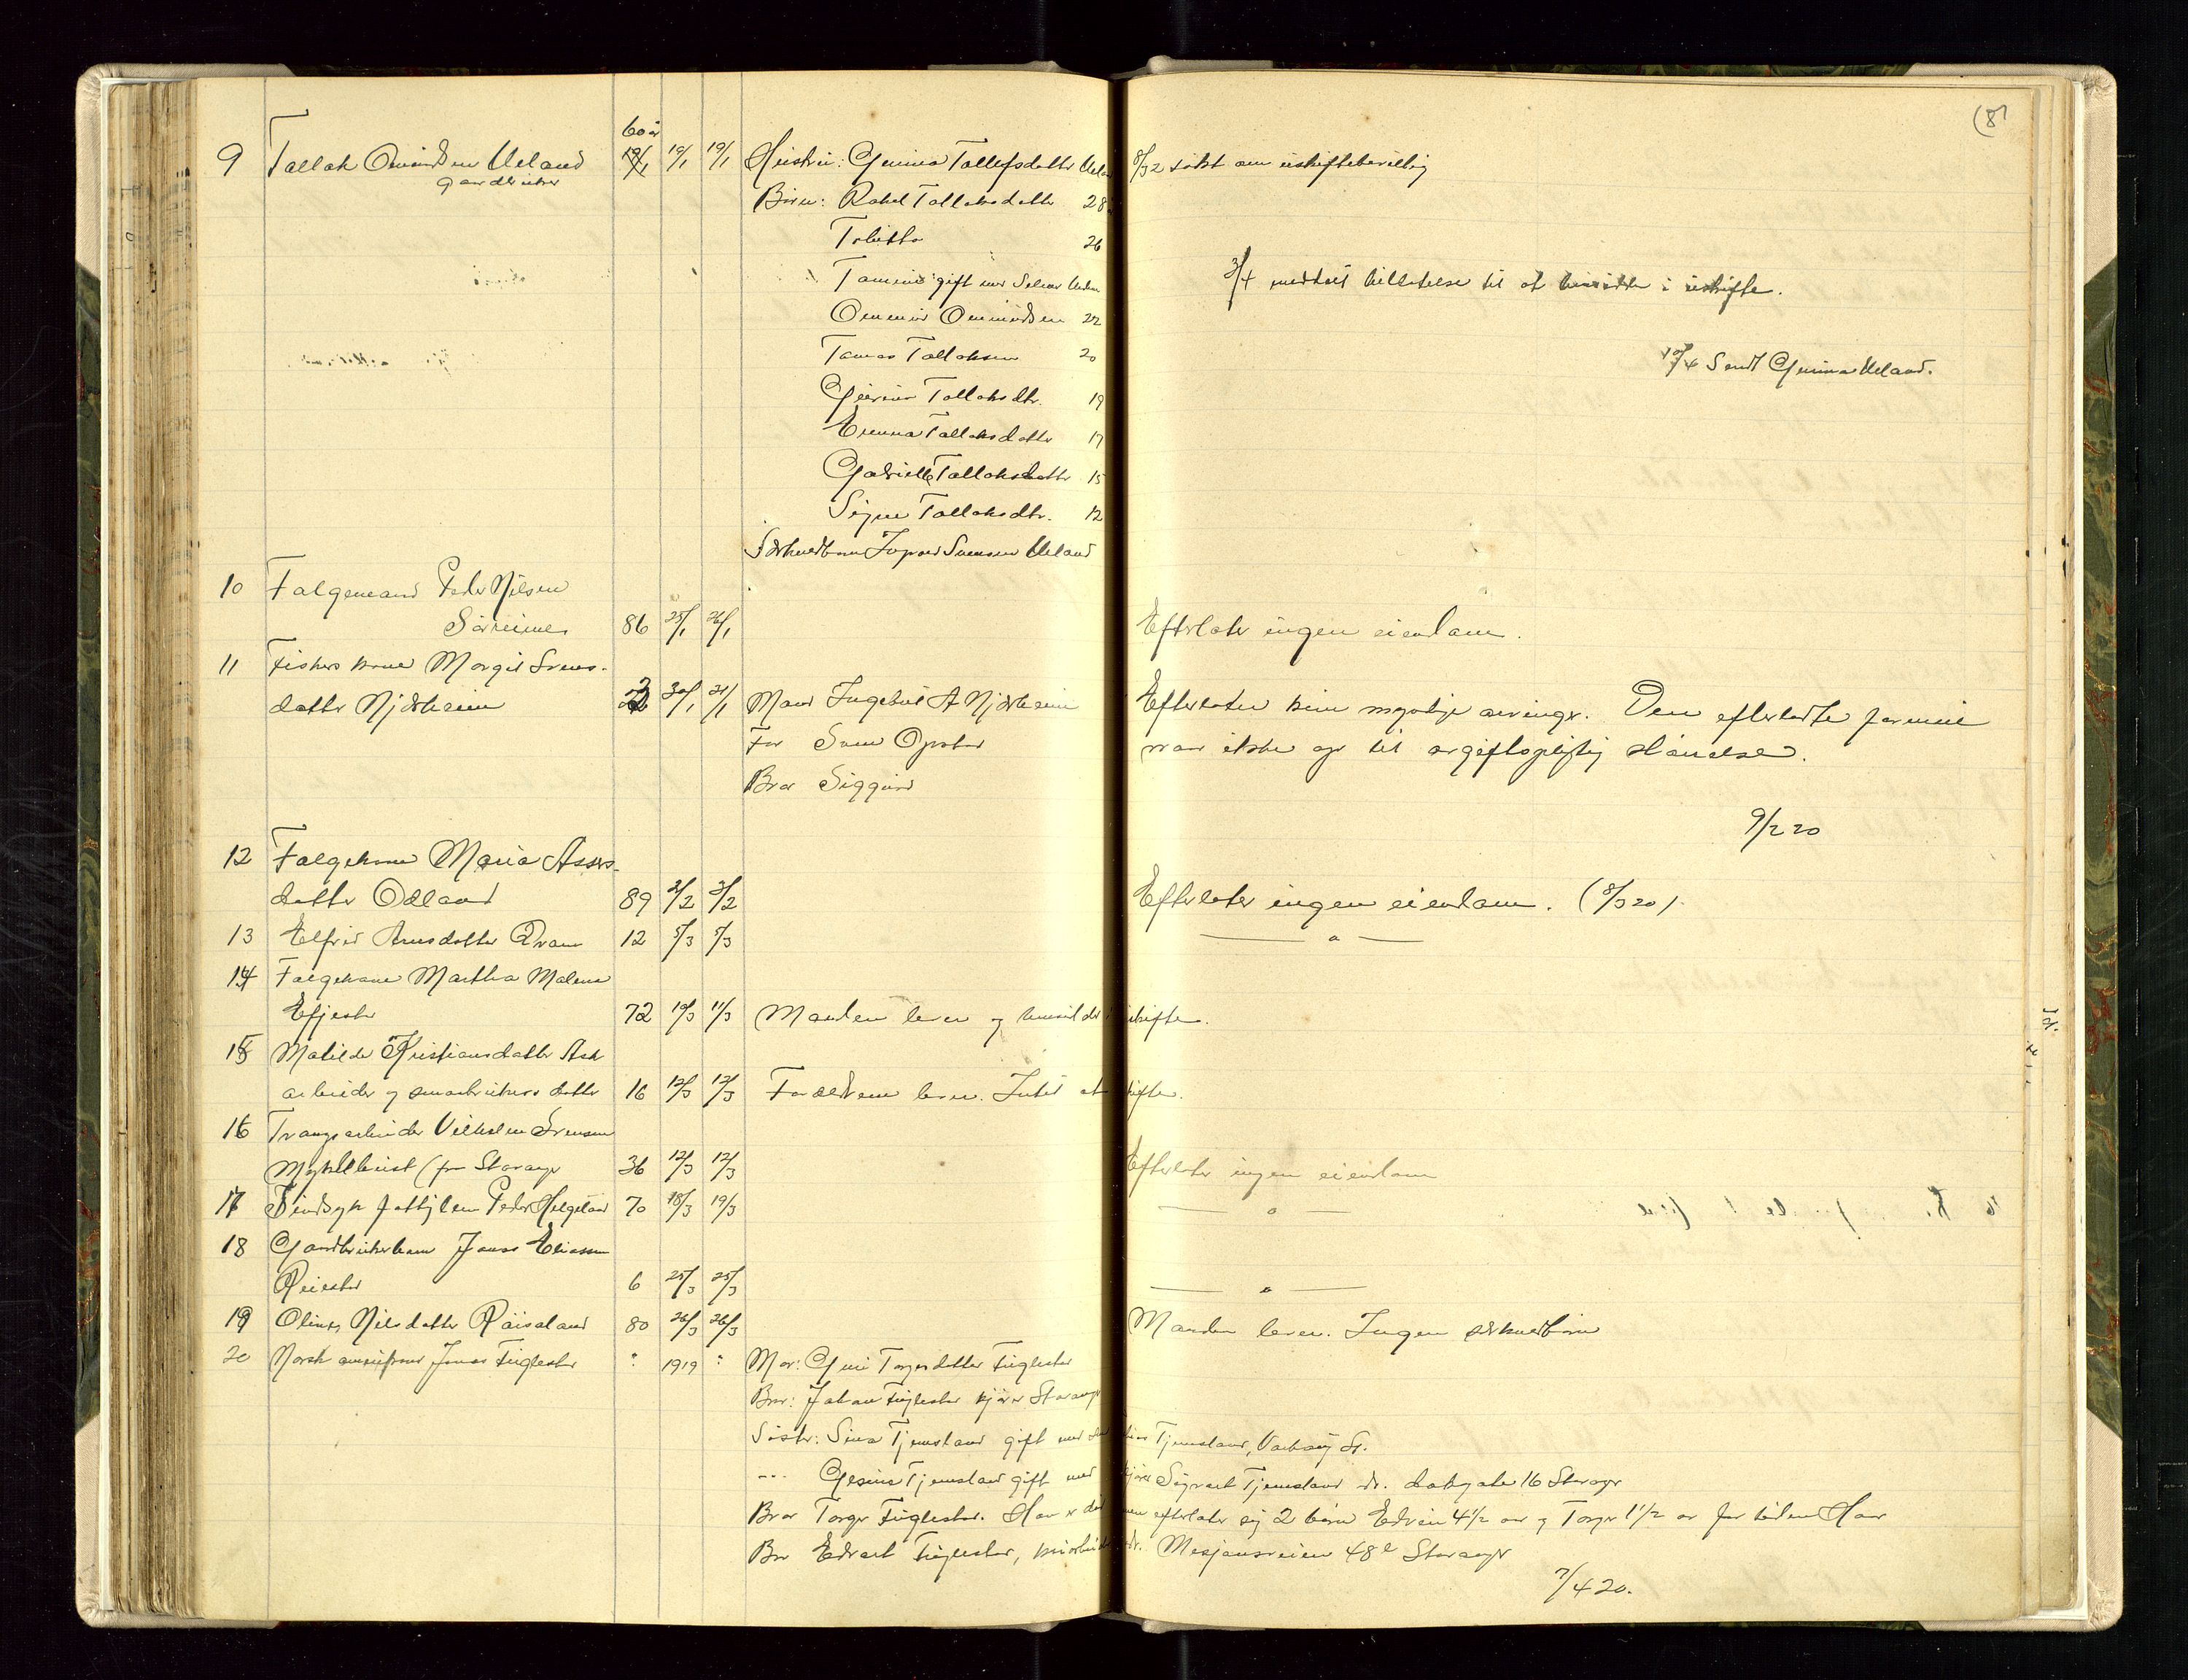 (8)
60 år
9 Tallak Omundsen Ueland 19/1 19/1 19/1 Hustru: Gunina Tollefsdatter Ueland 8/3 2 søkt om uskiftebevillig
gaardbruker
Børn: Rakel Tallaksdatter 28
Tobitta 26
Tamine gift med Ueland
3/4 meddelt tillatelse til at hensitte i uskifte.
Ommund Ommundsen 22
Tomas Tallaksen 20
10/4 Sendt Gunina Ueland.
Tallaksdtr. 19
Emma Tallaksdatter 17
Gabrielle Tallaksdatter 15
Signe Tallaksdtr. 12
Særkuldbarn Svensen Ueland
10 Følgemand Peder Nilsen
Sørreime 86 25/1 26/1 Efterlater ingen eiendom.
11 Fiskers kone Margit Svens-
datter Njærheim 22 30/1 31/1 Mand Ingebret A Njærheim Efterlater kun myndige arvinger. Den efterladte formue
Far Sven Opstad var ikke op til avgiftspligtig størrelse.
Bror Siggurd
9/2 20
12 Følgekone Maria Assers-
datter Ødland 89 2/2 3/2 Efterlater ingen eiendom. (8/3 20).
13 Elfrid Arnsdatter Kvam 12 5/3 5/3 — " —
14 Følgekone Martha Malena
Efjestad 72 10/3 11/3 Manden lever og hensidder i uskifte.
15 Matilde Kristiansdatter Ask
arbeider og smaabrukers datter 16 12/3 12/3 Forældrene lever. Intet at skifte.
16 Tvangsarbeider Vilhelm Svensen
Myklebust (fra Stavanger 36 12/3 12/3 Efterlater ingen eiendom
17 Sindsyk fattiglem Peder Helgeland 70 18/3 19/3 — " —
18 Gardbrukerbarn Jonas Eliassen
Reiestad 6 25/3 25/3 — " —
19 Oline Nilsdatter Røisland 80 26/3 26/3 Manden lever. Ingen særkuldbørn
20 Norsk amerikaner Jonas Fuglestad " 1919 " Mor: Guri Torgersdatter Fuglestad
Bror: Johan Fuglestad kjører Stavanger
Søster: Sina Tjemsland gift med Tjemsland, Varhaug St.
--- Gesine Tjemsland gift med kjører Sigvart Tjemsland dr. 16 Stavanger
Bror Torger Fuglestad. Han er død men efterlater sig 2 børn Edvin 4 1/2 aar og Torger 1 1/2 aar for tiden Haar
Bror Edvart Fuglestad, Misjonsveien 48 e Stavanger
7/4 20.